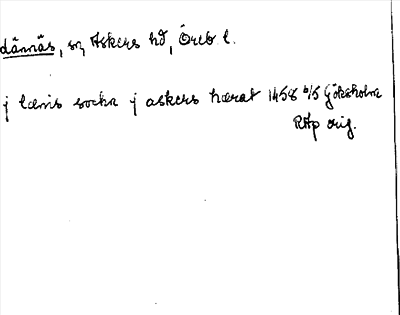 Lännäs, sn, Askers hd, Öreb l.
j lænis sockn j askers hærat 1458 6/5 Göksholm
RAp orig.